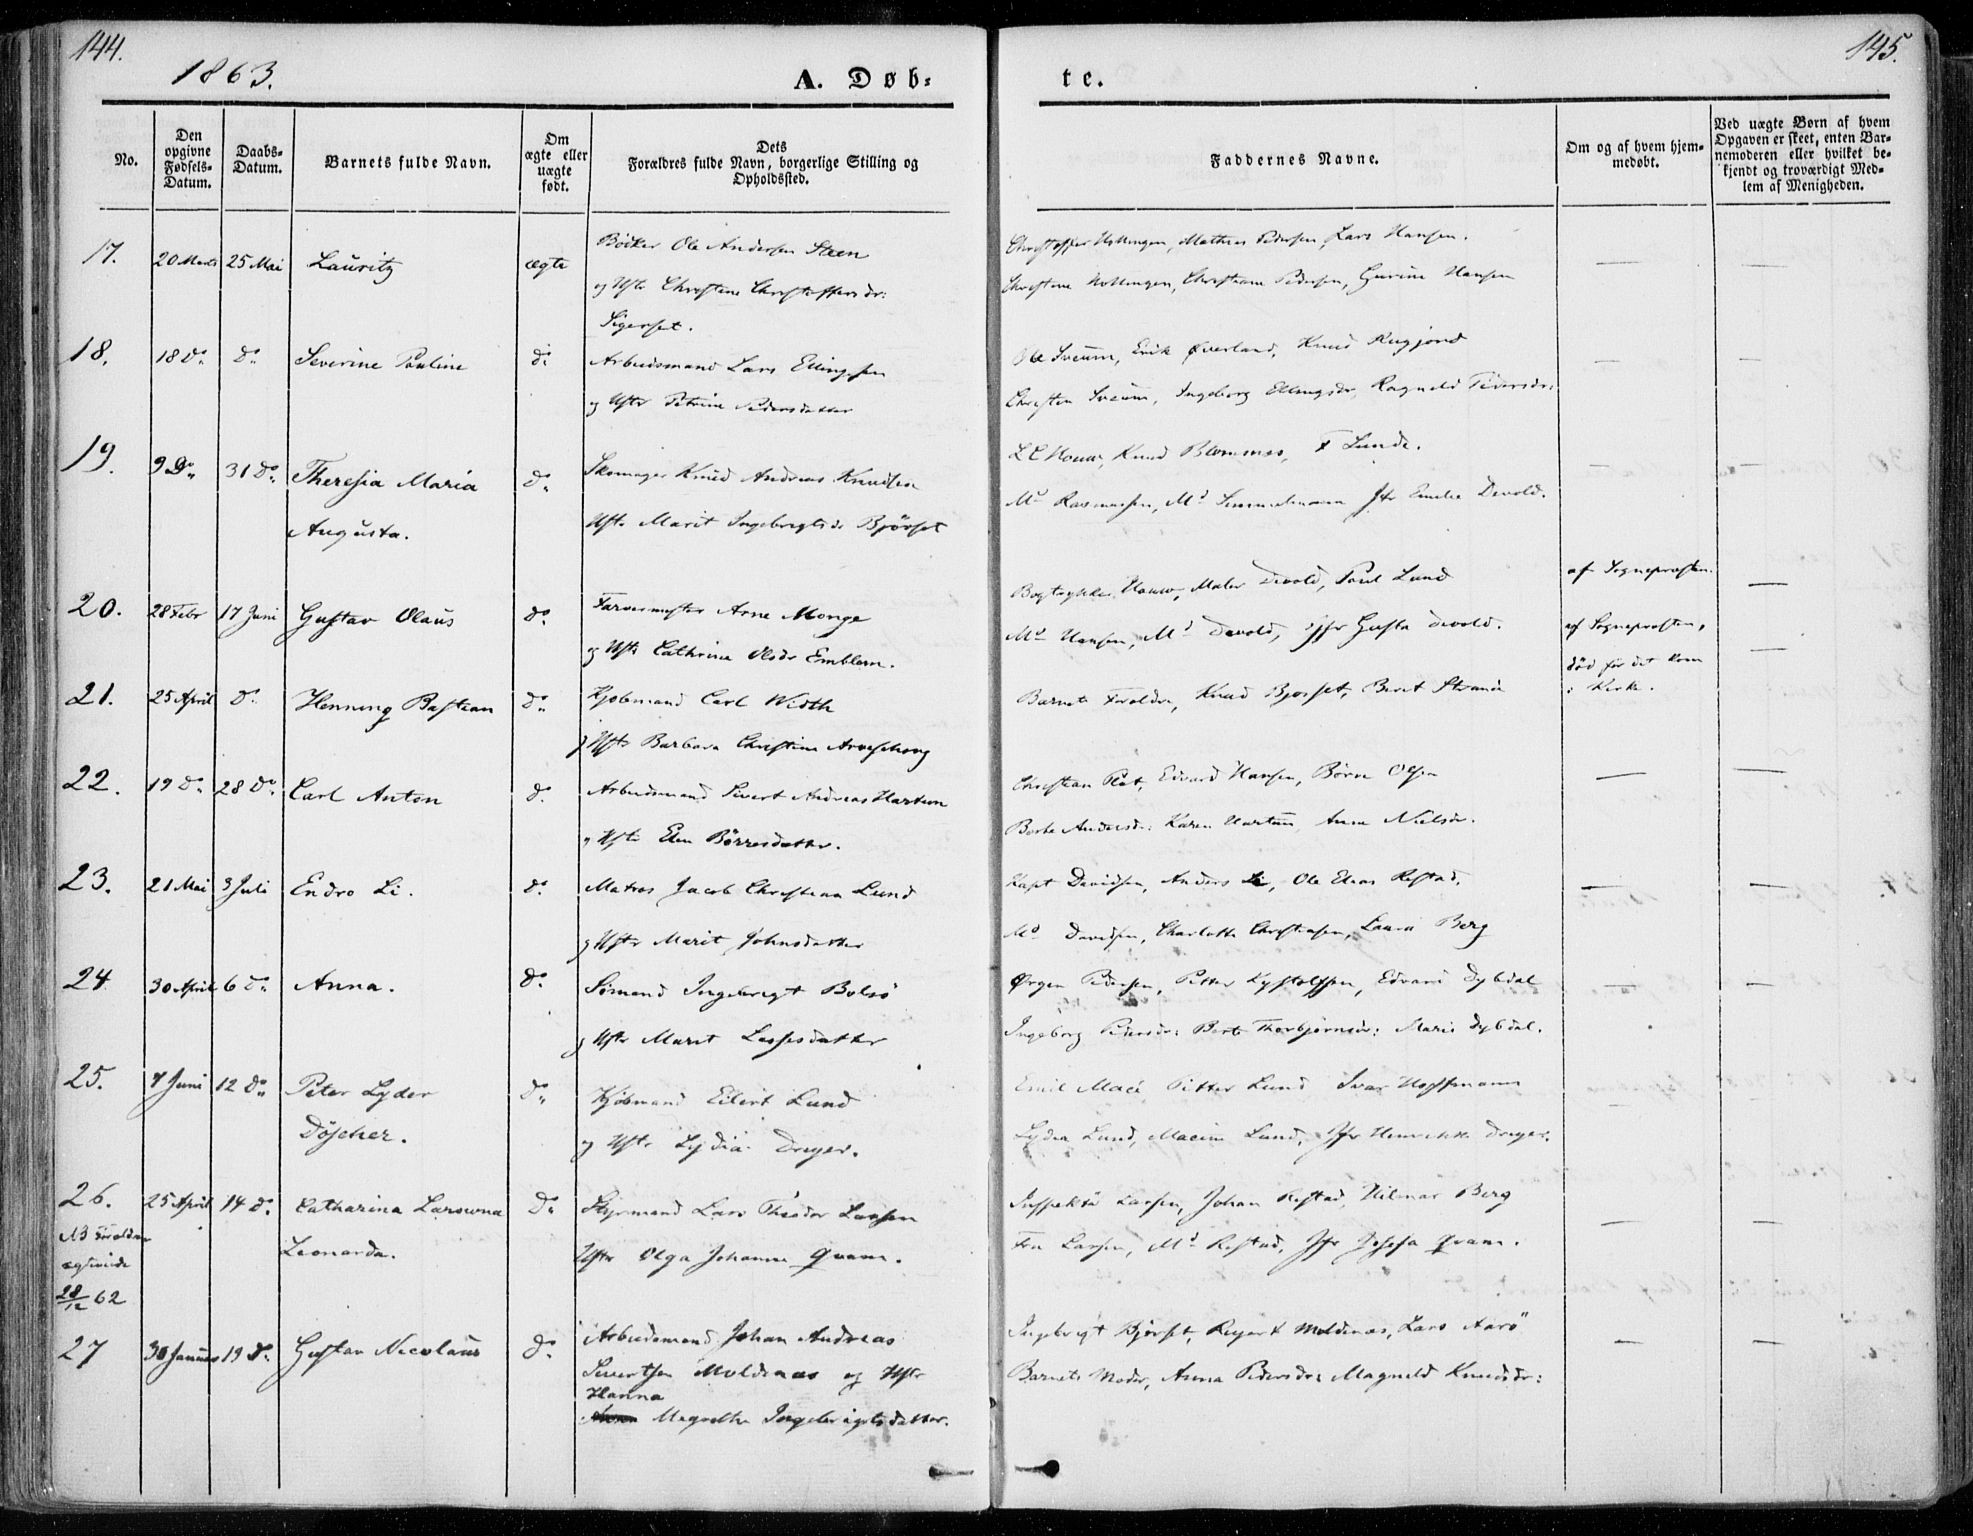 144.
1863.
A. Døb=
No.
Den opgivne Fødsels-Datum.
Daabs-Datum.
Barnets fulde Navn.
Om ægte eller uægte født.
Dets Forældres fulde Navn, borgerlige Stilling og Opholdssted.
17. 20 Marts 25 Mai Lauritz ægte Bödker Ole Andersen Steen
og Hstr Christine Christoffersdr:
Sigerset.
18. 18 Do. Do. Severine Pauline do. Arbeidsmand Lars Ellingsen
og Hstr Petrine Pedersdatter
19. 9 Do. 31 Do. Theresia Maria Augusta. do. Skomager Knud Andreas Knudsen
Hstr Marit Ingebrigtsdr Bjørset
20. 28 Febr 17 Juni Gustav Olaus do. Farvermester Arne Monge
og Hstr Cathrine Olsdr Emblem.
21. 25 April do. Henning Bastian do. Kjøbmand Carl Width
og Hstr Barbara Christine Arveschoug
22. 19 do. 28 do. Carl Anton do. Arbeidsmand Sivert Andreas Hartum
og Hstr Elen Börresdatter.
23. 21 Mai 3 Juli Endro Li. do. Matros Jacob Christian Lund
og Hstr Marit Johnsdatter
24 30 April 6 do. Anna. do. Sömand Ingebrigt Bolsö
og Hstr Marit Lassesdatter
25. 7 Juni 12 do. Peter Lyder Döscher. do. Kjöbmand Eilert Lund
og Hstr Lydia Dreyer.
26. 25 April 14 do. Catharina Larowna Leonarda. do. Styrmand Lars Theodor Larsen
Hstr Olga Johanne Qvam.
NB Forældre
ægteviede
28/12 62
27 30 Januar 19 do. Gustav Nicolaus do. Arbeidsmand Johan Andreas
Sivertsen Moldenæs og Hstr
Hanna
Magnethe Ingebrigtsdatter.
145.
te.
Faddernes Navne.
Om og af hvem hjemmedøbt.
Ved uægte Børn af hvem Opgaven er skeet, enten Barnemoderen eller hvilket bekjendt og troværdigt Medlem af Menigheden.
Christoffer Mathias Pedersen Lars Hansen.
Christine Christiane Pedersen, Gurine Hansen
Ole Sveum, Erik Øverland, Knud
Christen Sveum, Ingeborg Ellingsdr, Ragnild Pedersdr:
Knud Blomnæs, Lunde.
Md Rasmussen, Md Jfr Emelie Devold.
Maler Devold, Poul Lund
af Sognepræsten.
Md Hansen, Md Devold, Jfr Gusta Devold.
af Sognepræsten,
död før det kom
i Kirke.
Barnets Forældre, Knud Bjørset, Berit
Christian Edvard Hansen, Börre Olsen
Berte Andersdr: Karen Hartum, Anne Nielsdr.
Kapt Davidsen, Anders Li, Ole Elias Restad.
Md Davidsen, Charlotte Christensen, Laura Berg
Ørgen Pedersen, Petter Edvard Dybdal
Ingeborg Pedersdr: Berte Thorbjørnsdr: Marie Dybdal.
Emil Macé Petter Lund Ivar Hoffmann
Lydia Lund, Lund, Jfr Henrikke Dreyer.
Larsen, Johan Restad, Hilmar Berg
Fru Larsen, Md Restad, Jfr Josefa Qvam.
Ingebrigt Bjørset, Moldenæs, Lars Aarö
Barnets Moder, Anna Pedersdr: Magnild Knudsdr: